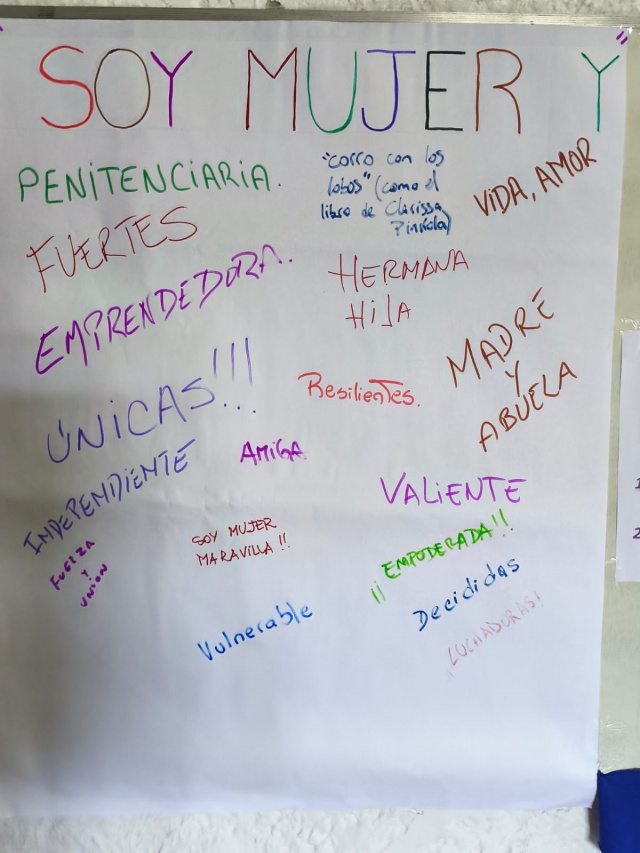 SOY MUJER Y
PENITENCIARIA.
"corro con los
lobos" (como el
libro de Clarissa
Pinkola)
VIDA, AMOR
FUERTES
EMPRENDEDORA.
HERMANA
HIJA
MADRE
Y
ABUELA
ÚNICAS!!!
Resilientes.
INDEPENDIENTE
AMIGA
VALIENTE
FUERZA
Y
UNIÓN
SOY MUJER
MARAVILLA !!
¡¡ EMPODERADA!!
Decididas
Vulnerable
¡LUCHADORAS!